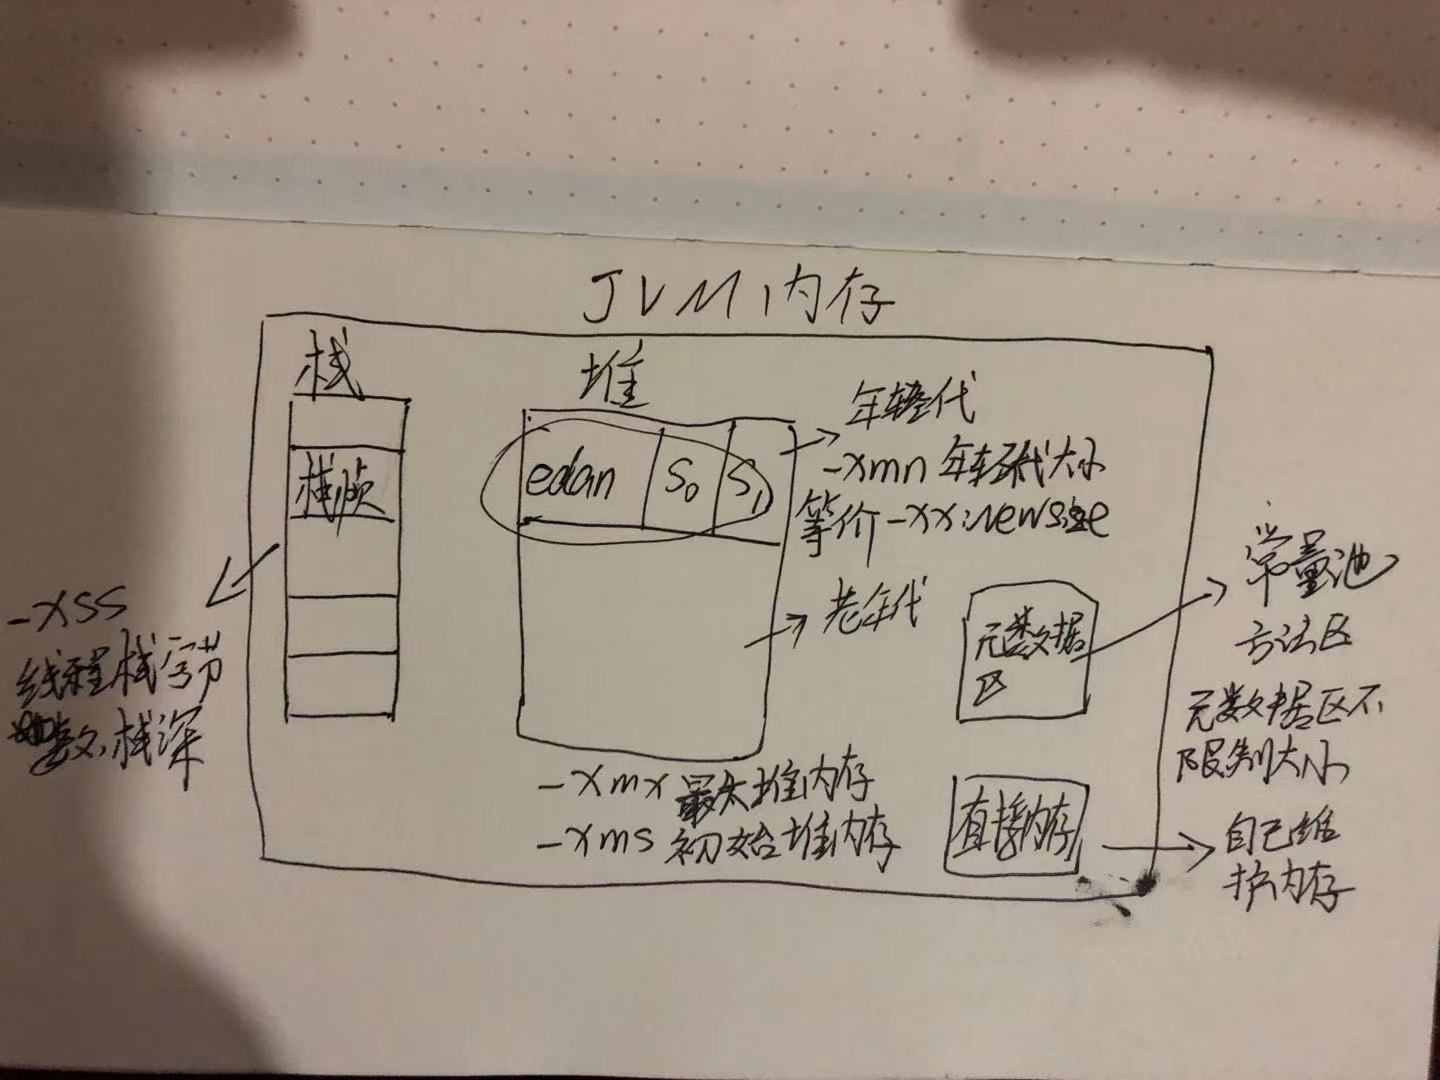 JVM内存
栈
栈帧
-xss
线程栈字节
数,栈深
堆
edan
S0
S1
年轻代
-xmn 年轻代大小
等价-xx:newsize
老年代
-xmx 最大堆内存
-xms 初始堆内存
元数据
区
常量池
方法区
元数据区不
限制大小
直接内存
自己维
护内存